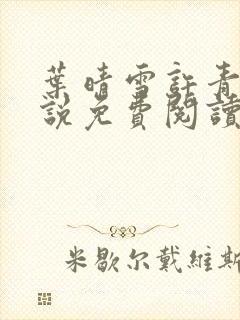 葉晴雪許青
說免費閱讀
米歇尔戴維斯